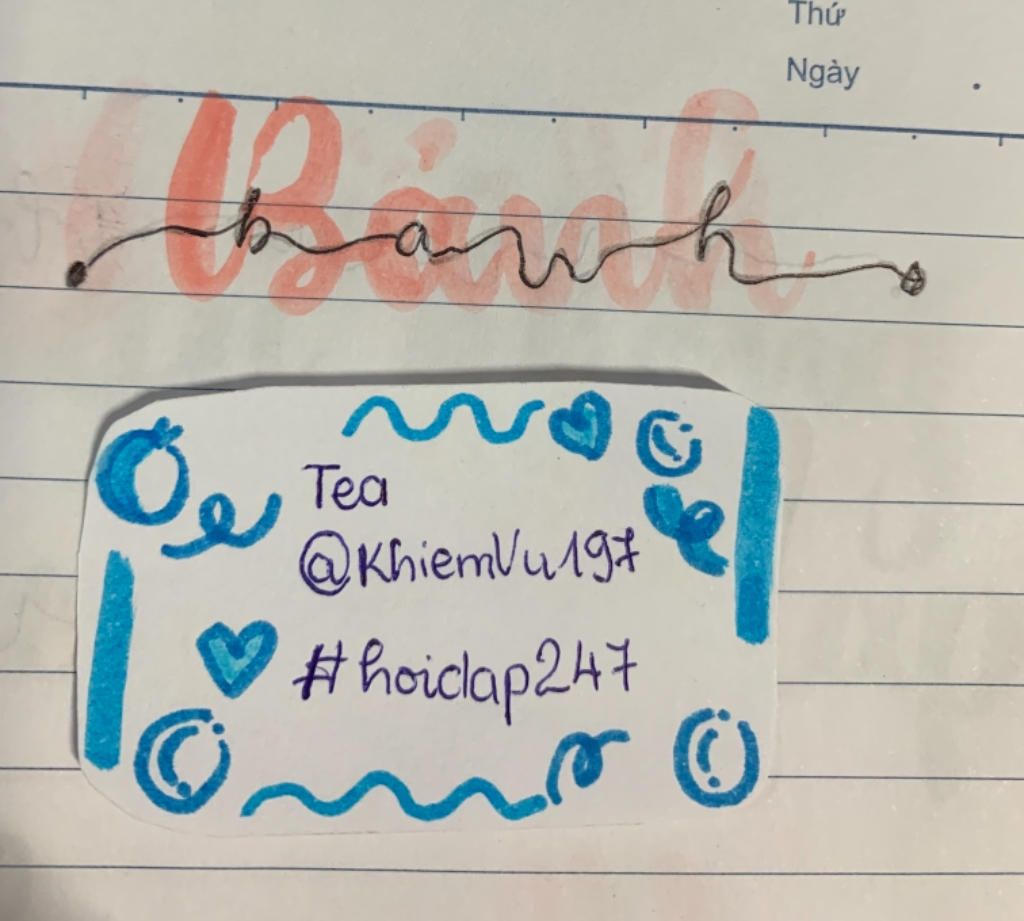 Thứ
Ngày
Bánh
banh
Tea
@KhiemVu197
#hoidap247